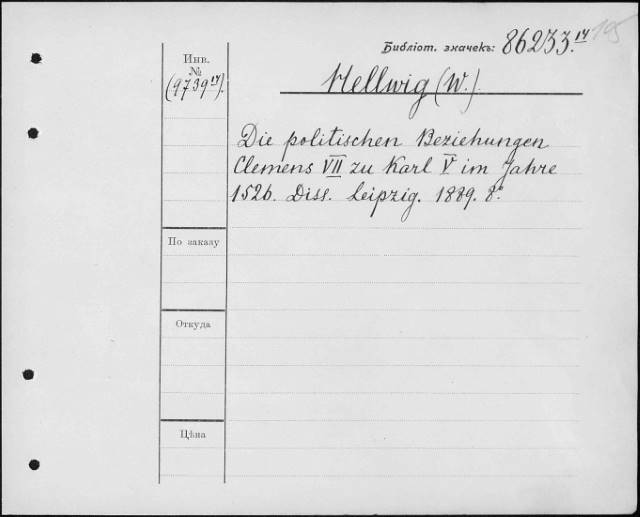 195
Библіот. значекъ: 86233.14
Инв.
№
(9739 14).
Hellwig (W.).
Die politischen Beziehungen
Clemens VII zu Karl V im Jahre
1526. Diss. Leipzig. 1889. 8º
По заказу
Откуда
Цѣна